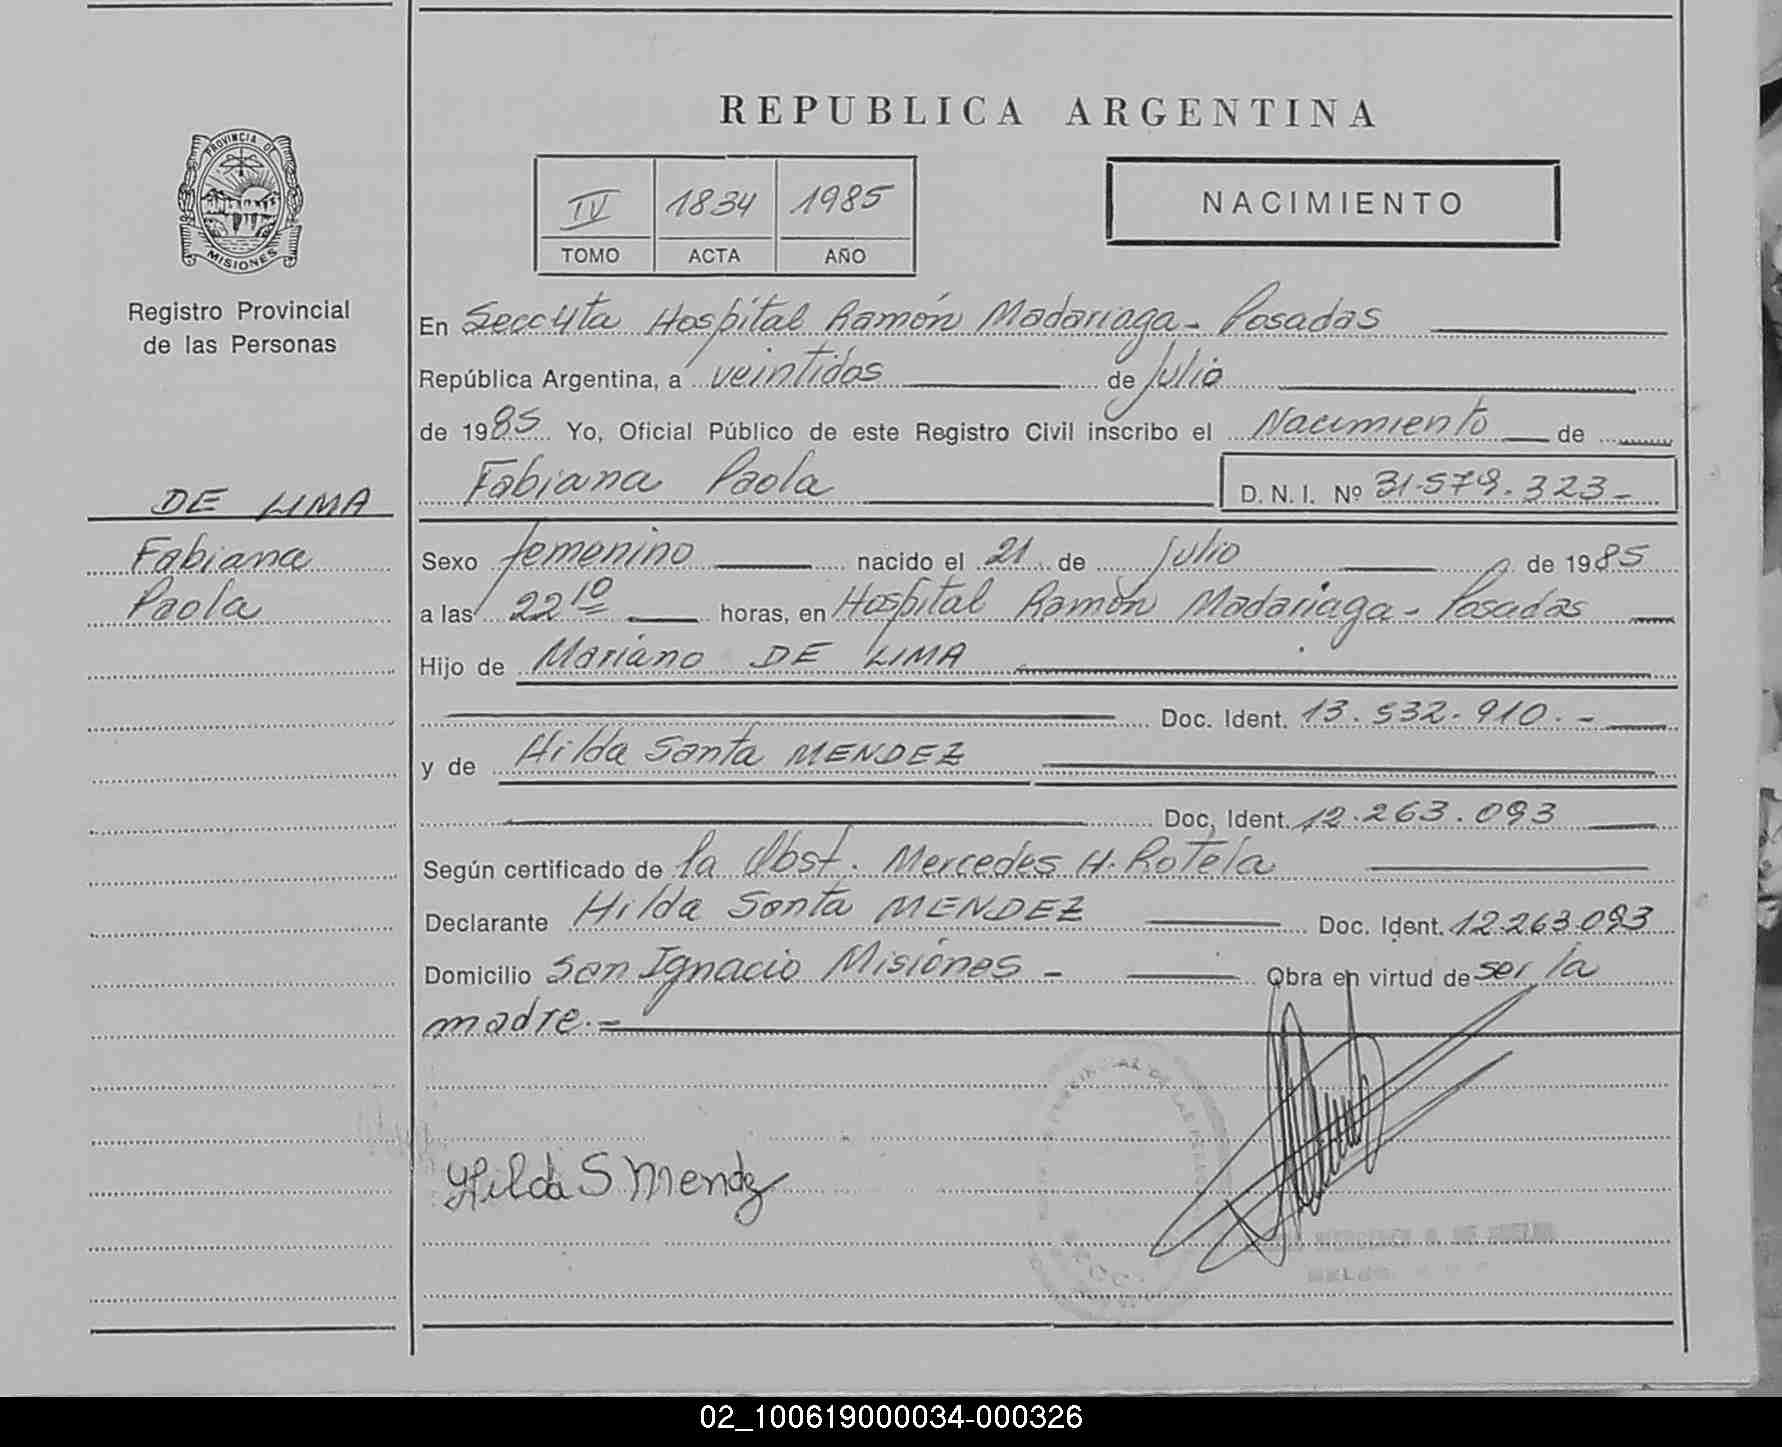 REPUBLICA ARGENTINA
PROVINCIA DE
MISIONES
Registro Provincial
de las Personas
IV 1834 1985
TOMO ACTA AÑO
NACIMIENTO
En Secc 4ta Hospital Ramón Madariaga - Posadas
República Argentina, a veintidos de Julio
de 1985 Yo, Oficial Público de este Registro Civil inscribo el Nacimiento de
Fabiana Paola D. N. I. Nº 31.579.323-
DE LIMA
Fabiana
Paola
Sexo femenino nacido el 21 de Julio de 1985
a las 22 10 horas, en Hospital Ramón Madariaga - Posadas
Hijo de Mariano DE LIMA
Doc. Ident. 13.532.910.-
y de Hilda Santa MENDEZ
Doc. Ident. 12.263.093
Según certificado de la Obst. Mercedes H. Rotela
Declarante Hilda Santa MENDEZ Doc. Ident. 12.263.093
Domicilio San Ignacio Misiones - Obra en virtud de ser la
madre.-
Hilda S Mendez
02_100619000034-000326